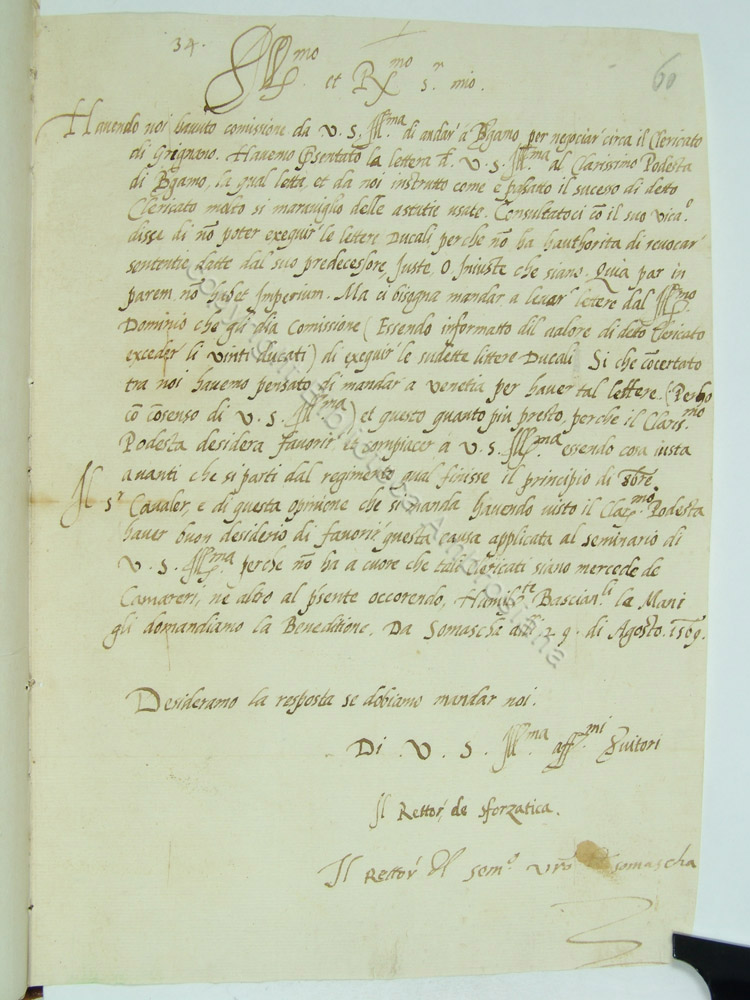 34.
60
Ill.mo et R.mo s.r mio.
Havendo noi havuto comissione da V. S. Ill.ma di andar' à Bgamo per negociar' circa il Clericato
di Grignano. Havemo psentato la lettera d. V. S. Ill.ma al Clarissimo Podesta
di Bgamo, la qual letta, et da noi instrutto come e passato il sucesso di detto
Clericato molto si maraviglio delle astutie usate. Consultatoci cō il suo Vica.o
disse di nō poter exeguir' le lettere Ducali perche nō ha hauthorita di revocar'
sententie datte dal suo predecessore Juste O Iniuste che siano. Quia par in
parem nō habet Imperium. Ma ci bisogna mandar a levar' lettere dal Ill.mo
Dominio che gli dia Comissione (Essendo informatto dil valore di detto Clericato
exceder' li vinti ducati) di exeguir' le sudette littere Ducali Si che cōcertato
tra noi havemo pensato di mandar a Venetia per haver tal lettere. (Perho
cō cōsenso di V. S. Ill.ma) et questo quanto piu presto, perche il Claris.mo
Podesta desidera favorir' et compiacer à V. S. Ill.ma essendo cosa iusta
avanti che si parti dal regimento qual finisse il principio di 8bre
Il s.r Cavaler, e di questa opinione che si manda havendo visto il Clar.mo Podesta
haver buon desiderio di favorir' questa causa applicata al seminario di
V. S. Ill.ma perche nō ha à cuore che tali Clericati siano mercede de
Camareri, ne altro al psente occorendo, Humilm.te Basciand.li le Mani
gli domandiamo la Beneditione. Da Somascha alli 29. di Agosto. 1569.
Desideramo la resposta se dobiamo mandar noi.
Di .V. S. Ill.ma aff.mi Svitori
Il Rettor' de Sforzatica.
Il Rettor' del sem.o vro somascha